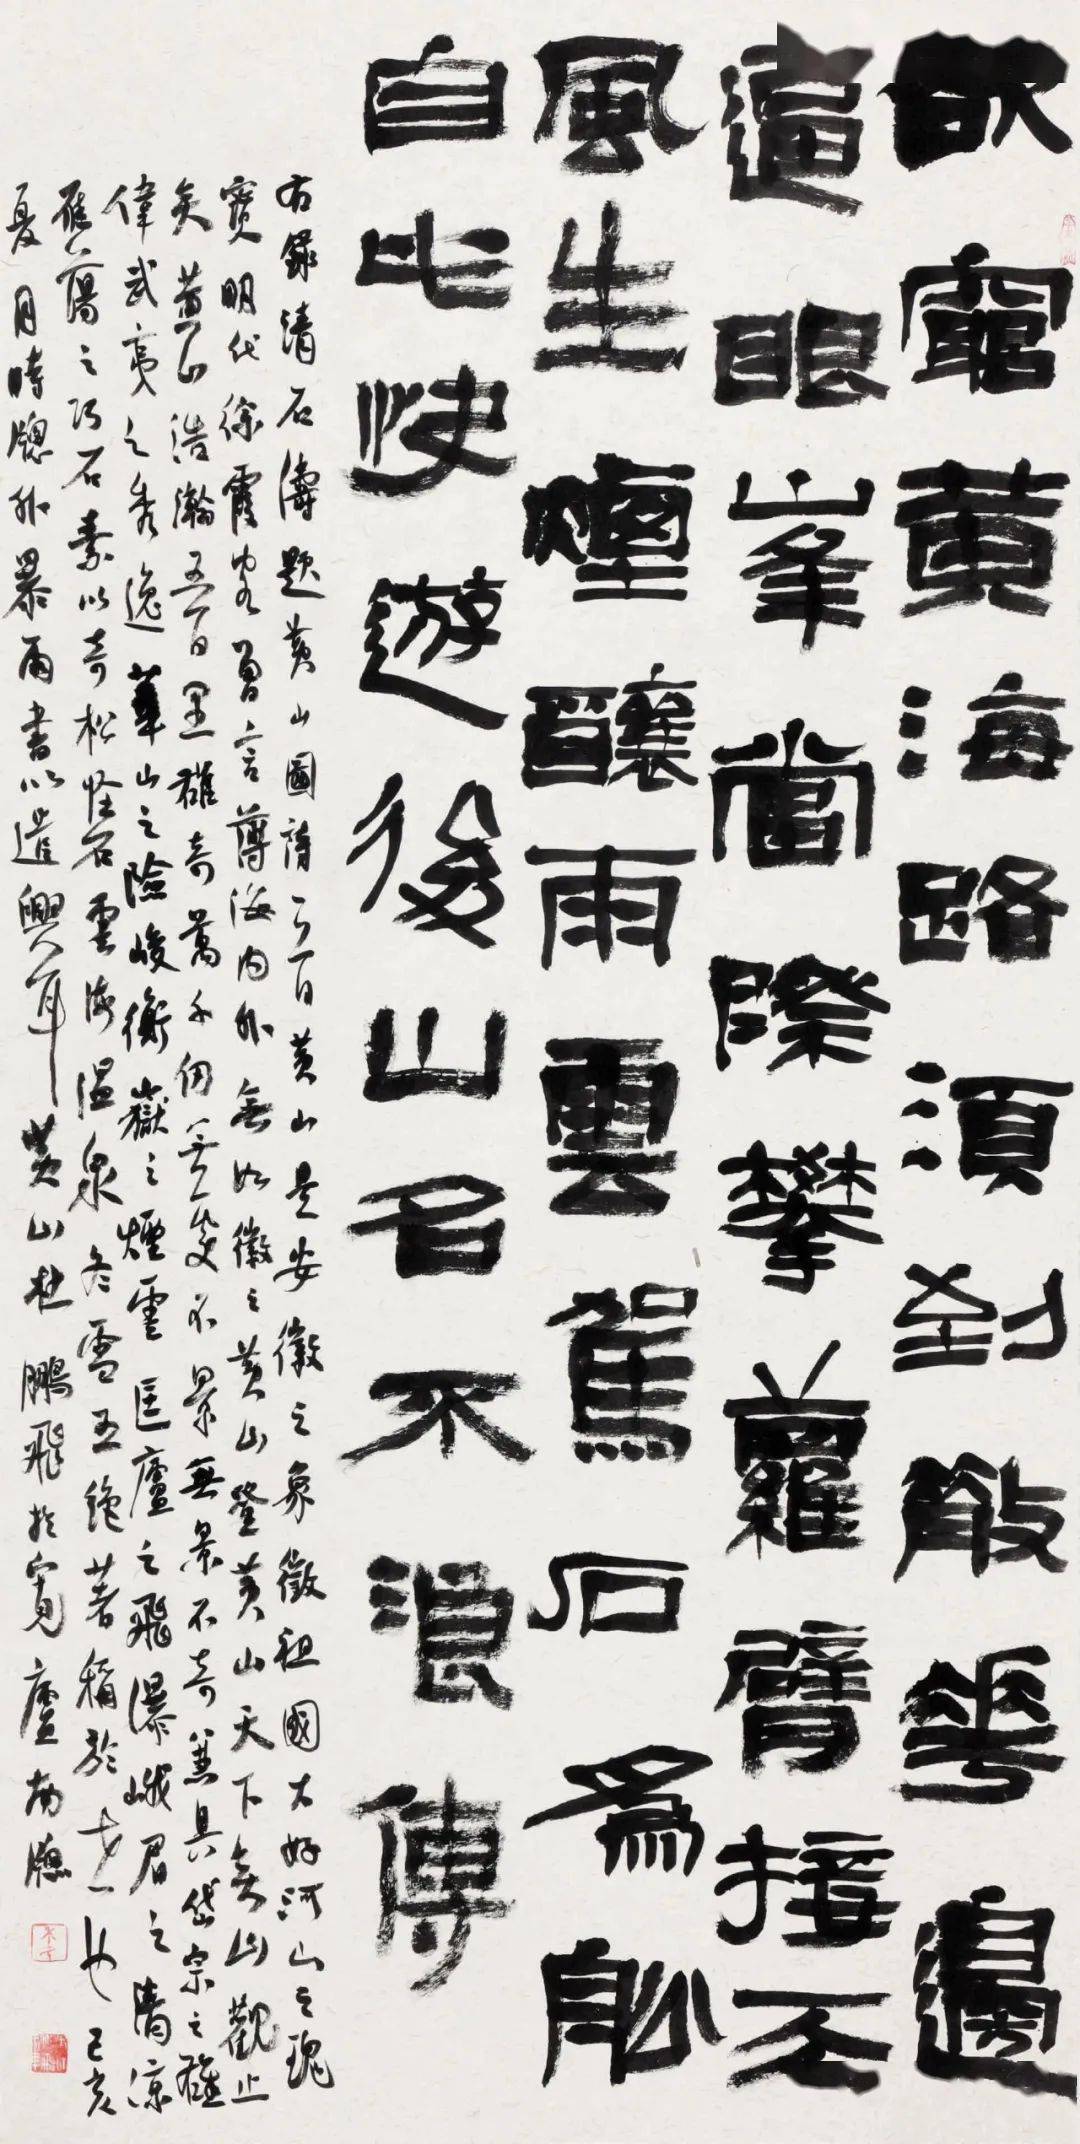 欲窮黃海路須到散花邊
逼眼峯當際攀蘿臂接不
風生煙釀雨雲駕石為船
自比快遊後山名不浪傳
右錄清石濤題黃山圖詩一首黃山是安徽之象徵祖國大好河山之瑰
寶明代徐霞客曾言薄海內外無如徽之黃山登黃山天下無山觀止
矣黃山浩瀚五百里雄奇萬千仞無處不景無景不奇兼具岱宗之雄
偉武夷之秀逸華山之險峻衡嶽之煙雲匡廬之飛瀑峨眉之清涼
雁蕩之巧石素以奇松怪石雲海溫泉冬雪五絕著稱於世也己亥
夏月時窗外暴雨書以遣興耳黃山杜鵬飛於寬廬南窗